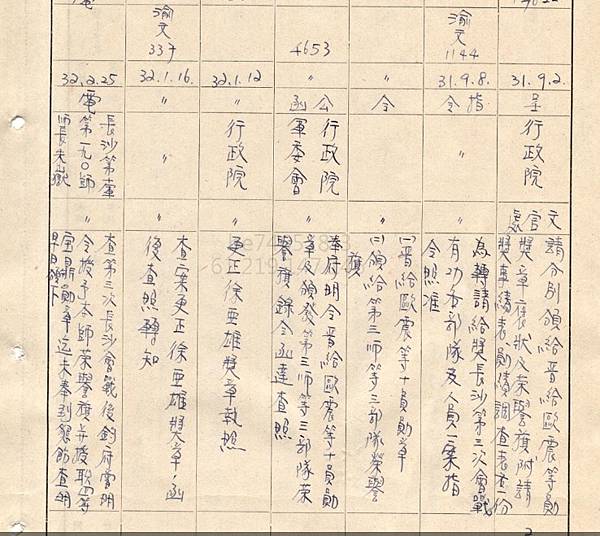 31.9.2.
呈
行政院
文官處
請分別頒給晋給歐震等勛
獎章褒狀及榮譽旗附請
獎事績表勛績調查表各一份
渝文
1144
31.9.8.
指令
〃
〃
為轉請給獎長沙第三次會戰
有功各部隊及人員一案指
令照准
〃
令
(一)晋給歐震等十員勛章
(二)頒給第三師等三部隊榮譽
旗
4653
〃
公函
行政院
軍委會
奉府明令晋給歐震等十員勛
章及頒發第三師等三部隊榮
譽旗錄令函達查照
32.1.12
〃
行政院
〃
更正徐亜雄獎章執照
渝文
337
32.1.16.
〃
〃
〃
查案更正徐亜雄獎章,函
後查照轉知
32.2.25
電
長沙第十軍
第一九〇師
師長朱嶽
〃
查第三次長沙會戰後鈞府曾明
令授予本師榮譽旗並授職四等
宝鼎勛章迄未奉到懇飭查明
早日頒下